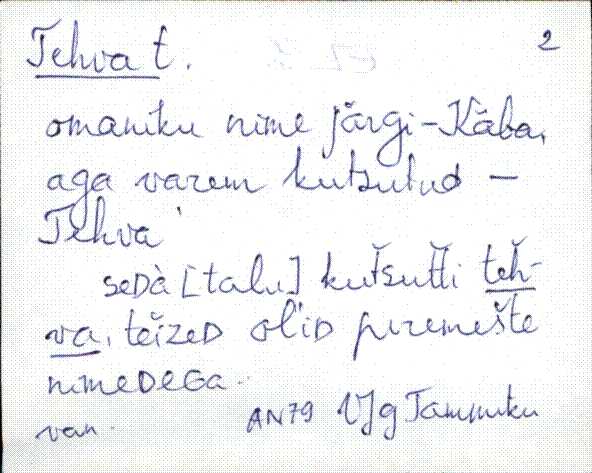 Tehva t. 2
omaniku nime järgi - Käba,
aga varem kutsutud –
Tehva
seᴅà [talu] kuťsuťťi teh̆-
va, teìzeᴅ ol'iᴅ peremešte
nimeᴅeɢa.
van. AN79 VJg Tammiku